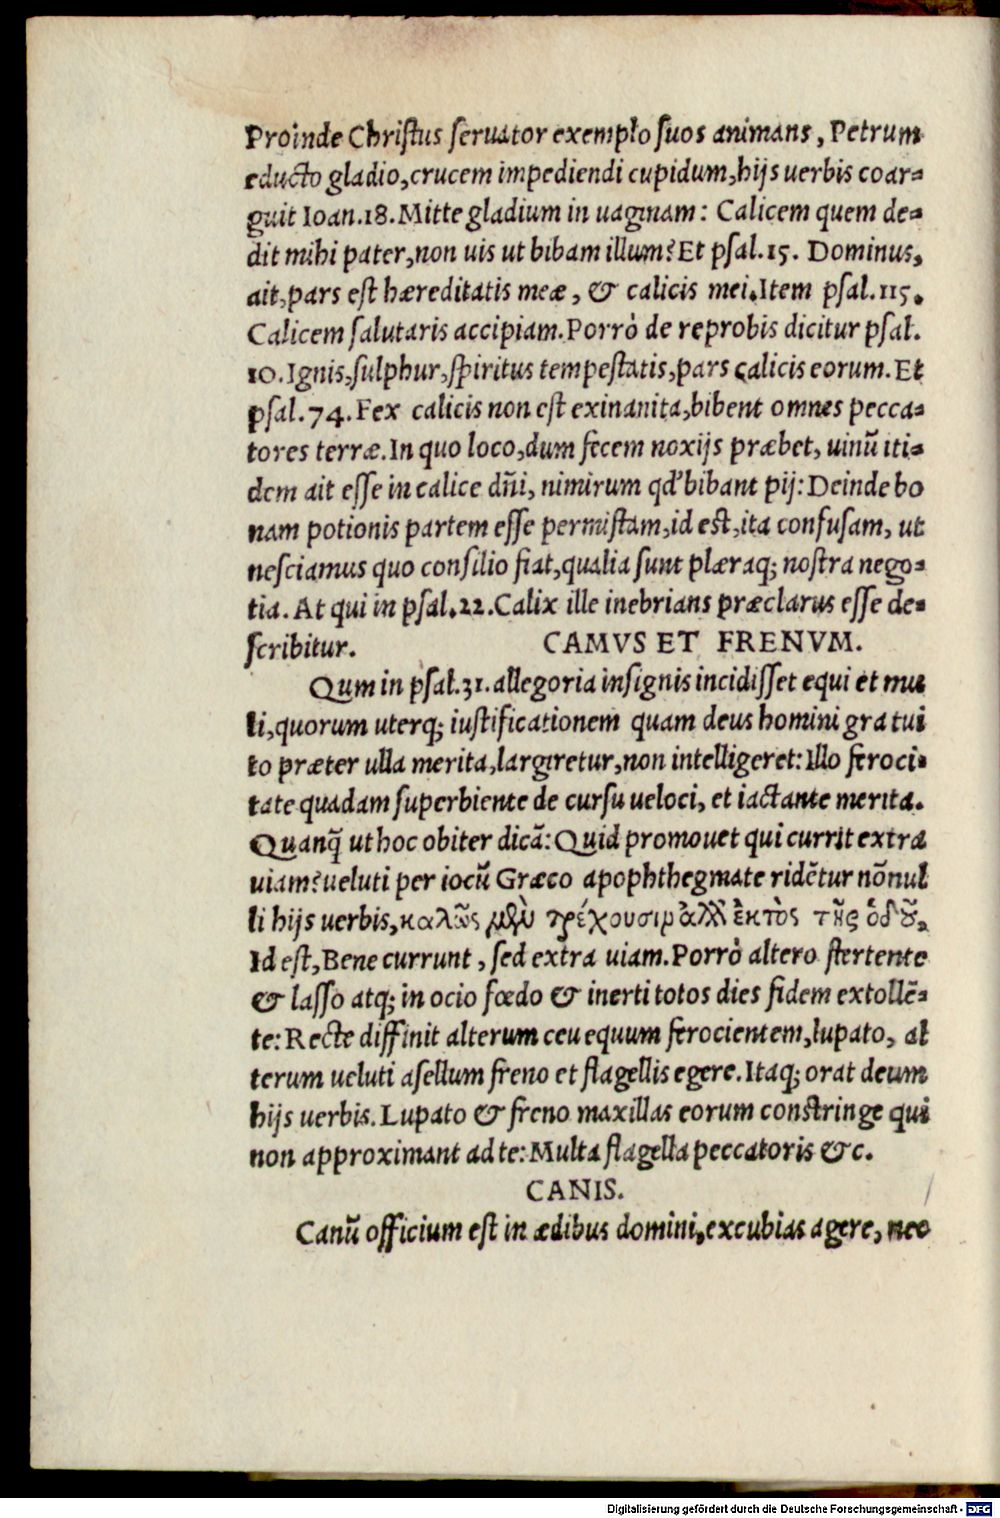 Proinde Christus seruator exemplo suos animans, Petrum
educto gladio,crucem impediendi cupidum,hijs uerbis coar-
guit Ioan.18.Mitte gladium in uaginam: Calicem quem de-
dit mihi pater,non uis ut bibam illum? Et psal.15. Dominus,
ait,pars est hæreditatis meæ, & calicis mei.Item psal.115.
Calicem salutaris accipiam.Porrò de reprobis dicitur psal.
10.Ignis,sulphur,spiritus tempestatis,pars calicis eorum.Et
psal.74.Fex calicis non est exinanita,bibent omnes pecca-
tores terræ.In quo loco,dum fecem noxijs præbet, uinũ iti-
dem ait esse in calice dñi, nimirum qđ bibant pij:Deinde bo
nam potionis partem esse permistam,id est,ita confusam, ut
nesciamus quo consilio fiat,qualia sunt plæraq; nostra nego-
tia. At qui in psal.22.Calix ille inebrians præclarus esse de-
scribitur. CAMVS ET FRENVM.
Qum in psal.31.allegoria insignis incidisset equi et mu
li,quorum uterq; iustificationem quam deus homini gratui
to præter ulla merita,largiretur,non intelligeret: Illo feroci-
tate quadam superbiente de cursu ueloci, et iactante merita.
Quanq̃ ut hoc obiter dicã: Quid promouet qui currit extra
uiam? ueluti per iocũ Græco apophthegmate ridẽtur nõnul
li hijs uerbis,καλῶς μὲν τρέχουσιμ ἀλλ' ἐκτὸς τῆς ὁδοῦ.
Id est,Bene currunt, sed extra uiam.Porrò altero stertente
& lasso atq; in ocio fœdo & inerti totos dies fidem extollẽ-
te: Recte diffinit alterum ceu equum ferocientem,lupato, al
terum ueluti asellum freno et flagellis egere.Itaq; orat deum
hijs uerbis.Lupato & freno maxillas eorum constringe qui
non approximant ad te: Multa flagella peccatoris &c.
CANIS.
Canũ officium est in ædibus domini,excubias agere, nec
Digitalisierung gefördert durch die Deutsche Forschungsgemeinschaft - DFG